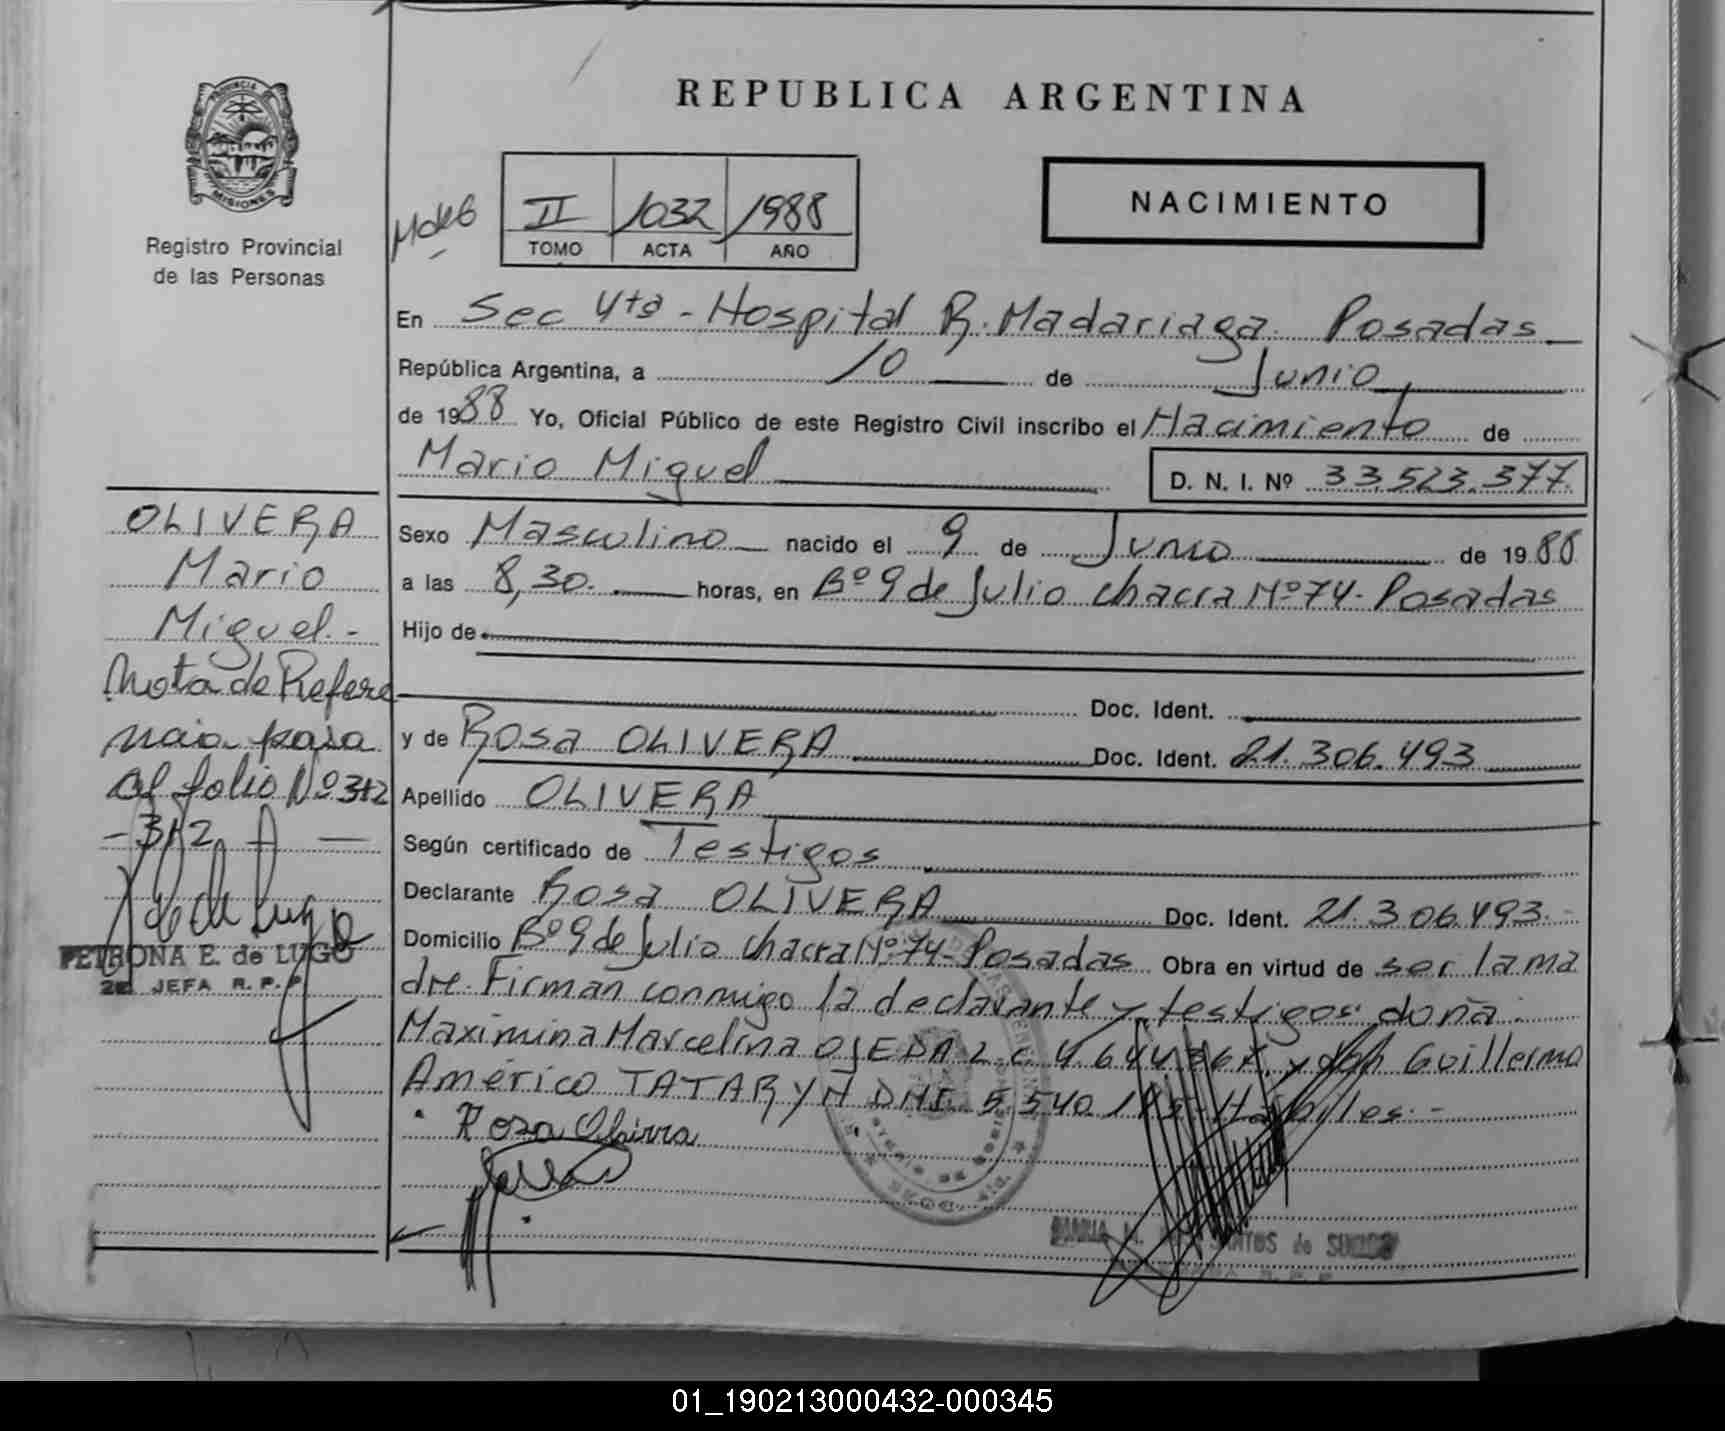 REPUBLICA ARGENTINA
PROVINCIA DE
MISIONES
Registro Provincial
de las Personas
II 1032 1988
TOMO ACTA AÑO
NACIMIENTO
En Sec 4ta - Hospital R. Madariaga. Posadas
República Argentina, a 10 de Junio
de 1988 Yo, Oficial Público de este Registro Civil inscribo el Nacimiento de
Mario Miguel D. N. I. Nº 33.523.377.
Sexo Masculino nacido el 9 de Junio de 1988
a las 8,30. horas, en Bº 9 de Julio chacra Nº 74. Posadas
Hijo de
Doc. Ident.
y de Rosa OLIVERA Doc. Ident. 21.306.493
Apellido OLIVERA
Según certificado de Testigos
Declarante Rosa OLIVERA Doc. Ident. 21.306.493.-
Domicilio Bº 9 de Julio chacra Nº 74- Posadas Obra en virtud de ser la ma
dre. Firman conmigo la declarante y testigos: doña:
Maximina Marcelina OJEDA L.C. y don Guillermo
Américo TATARYN DNI. 5.540. Hábiles.-
Rosa
OLIVERA
Mario
Miguel.-
Nota de Refere
ncia pasa
al folio Nº 312
-312
PETRONA E. de LUGO
JEFA R. P. P
SANTOS de
01_190213000432-000345